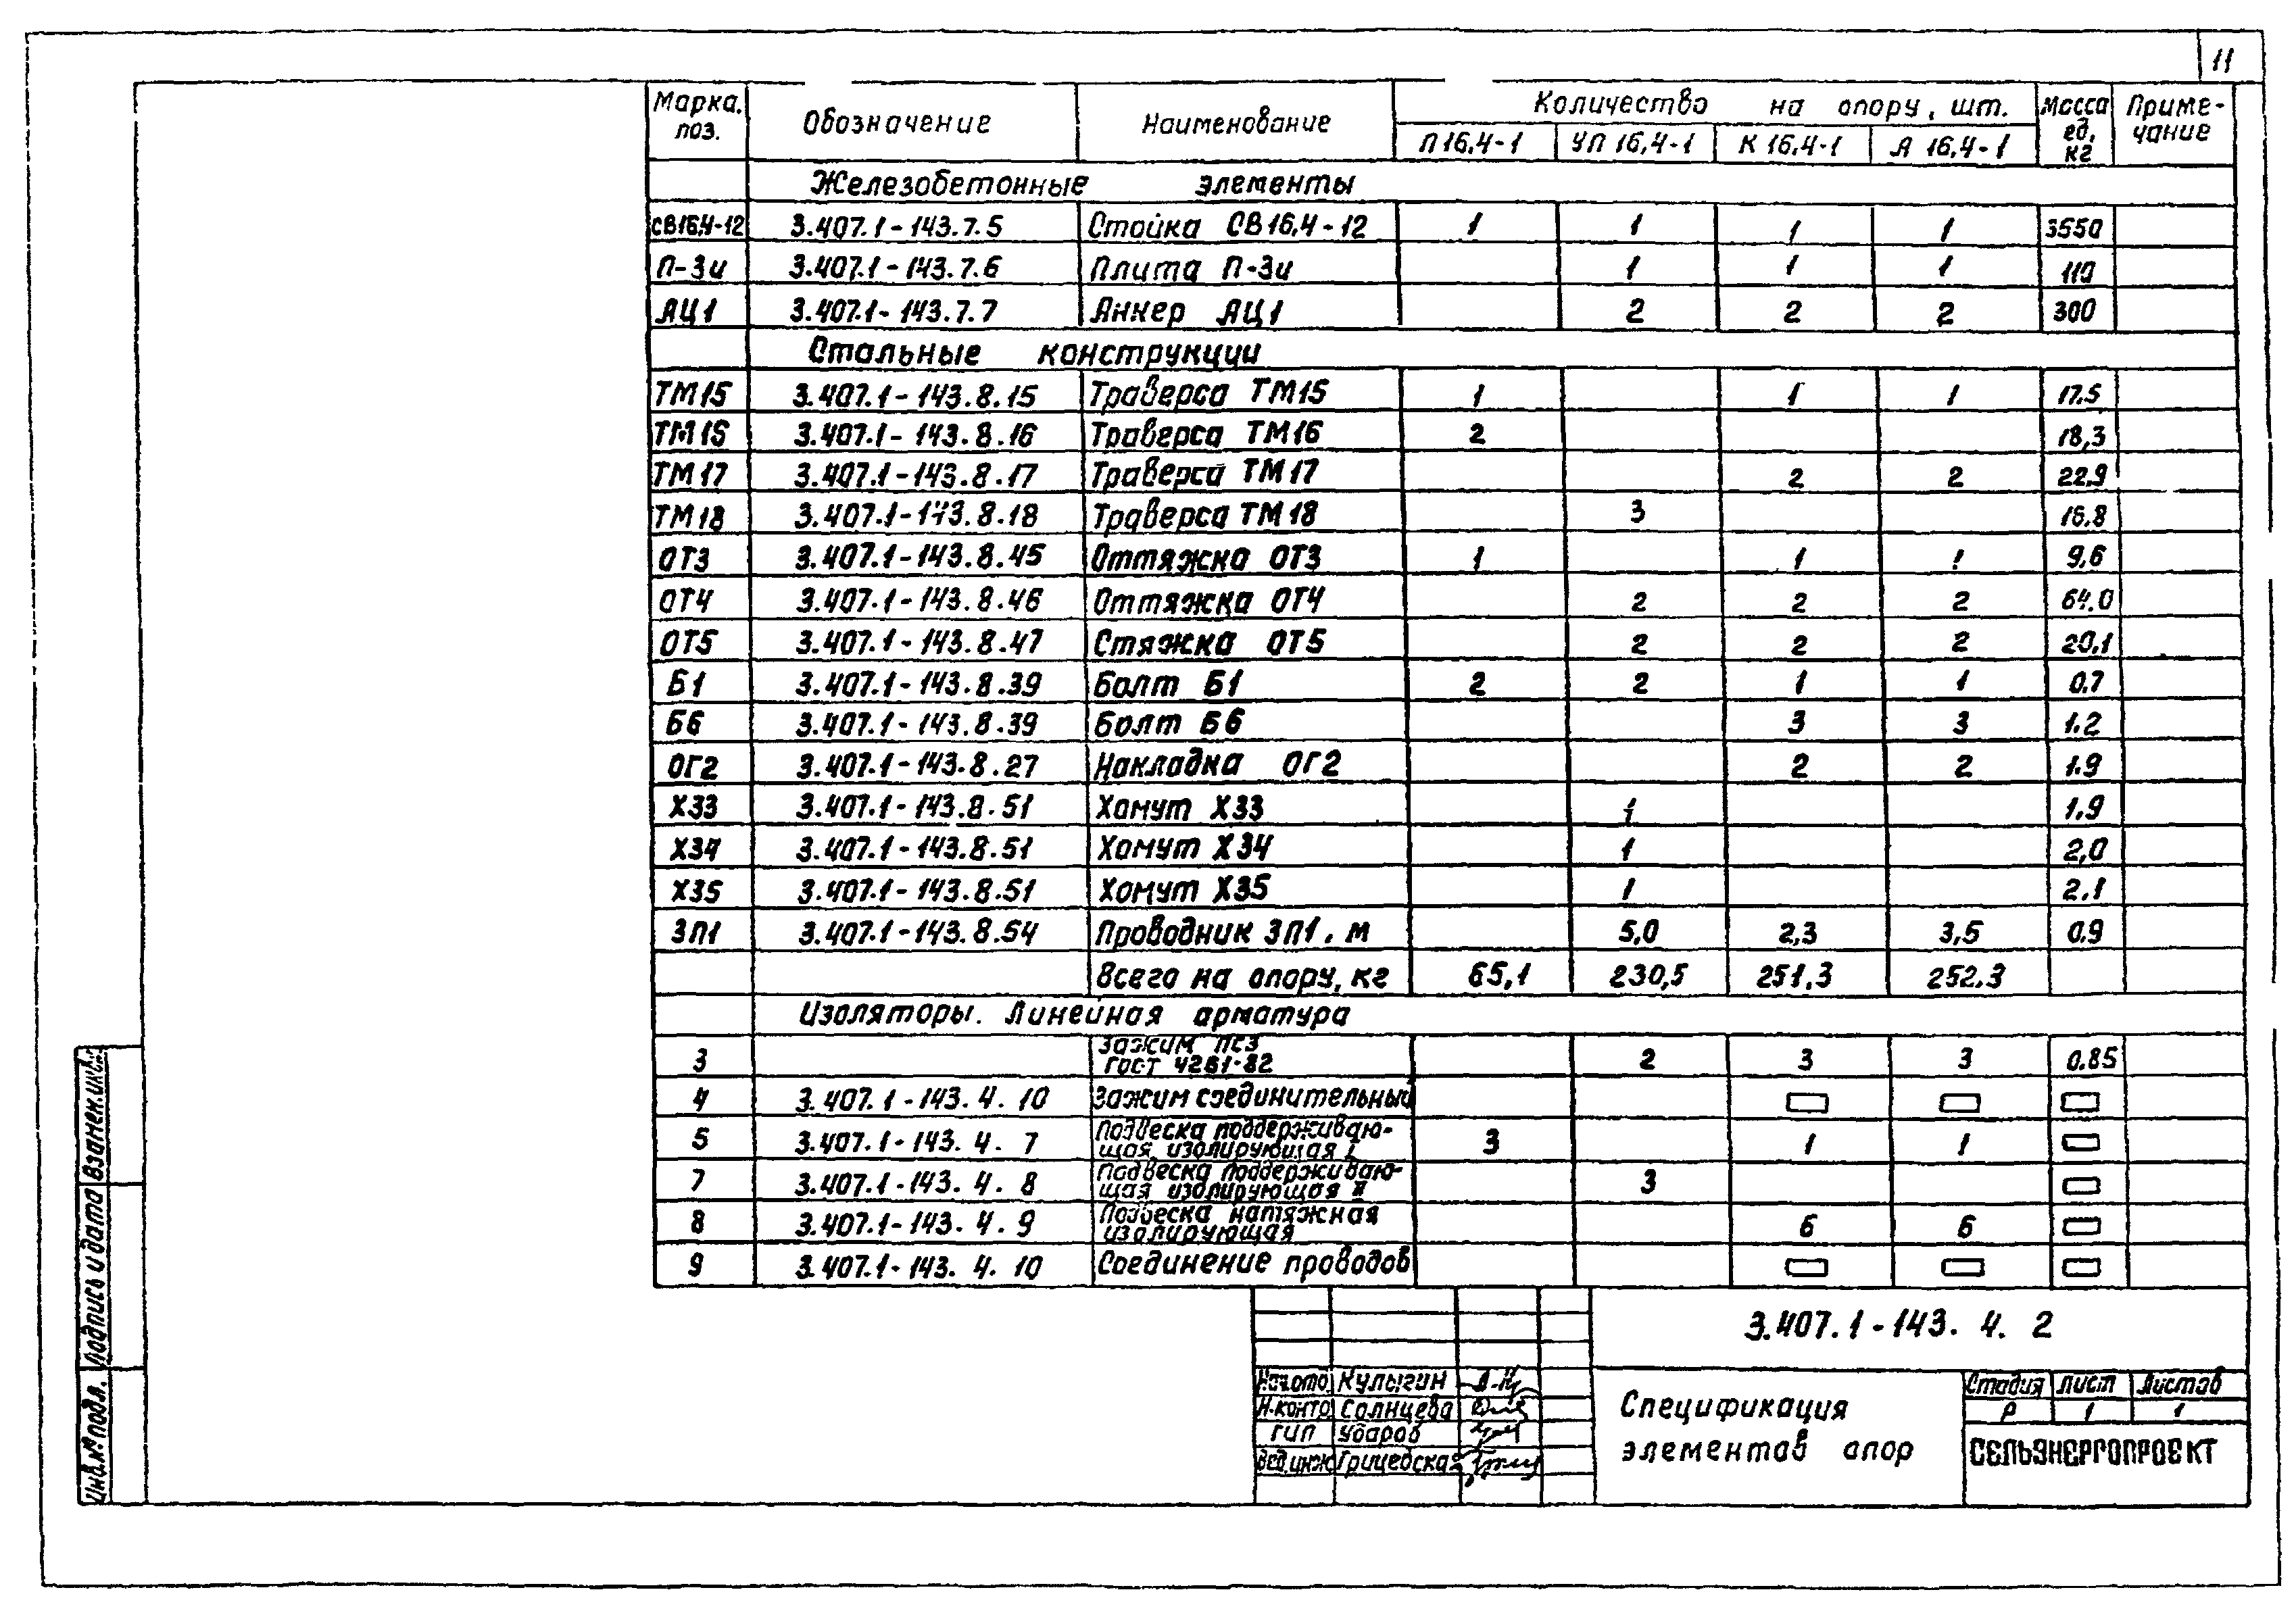 11
Марка, поз. Обозначение Наименование Количество на опору, шт. Масса ед, кг Примечание
П16,4-1 УП 16,4-1 К 16,4-1 А 16,4-1
Железобетонные элементы
СВ16,4-12 3.407.1-143.7.5 Стойка СВ16,4-12 1 1 1 1 3550
П-3и 3.407.1-143.7.6 Плита П-3и 1 1 1 110
АЦ1 3.407.1-143.7.7 Анкер АЦ1 2 2 2 300
Стальные конструкции
ТМ15 3.407.1-143.8.15 Траверса ТМ15 1 1 1 17.5
ТМ16 3.407.1-143.8.16 Траверса ТМ16 2 18,3
ТМ17 3.407.1-143.8.17 Траверса ТМ17 2 2 22.9
ТМ18 3.407.1-143.8.18 Траверса ТМ18 3 16.8
ОТ3 3.407.1-143.8.45 Оттяжка ОТ3 1 1 1 9,6
ОТ4 3.407.1-143.8.46 Оттяжка ОТ4 2 2 2 64.0
ОТ5 3.407.1-143.8.47 Стяжка ОТ5 2 2 2 20,1
Б1 3.407.1-143.8.39 Болт Б1 2 2 1 1 0.7
Б6 3.407.1-143.8.39 Болт Б6 3 3 1.2
ОГ2 3.407.1-143.8.27 Накладка ОГ2 2 2 1.9
Х33 3.407.1-143.8.51 Хомут Х33 1 1.9
Х34 3.407.1-143.8.51 Хомут Х34 1 2,0
Х35 3.407.1-143.8.51 Хомут Х35 1 2.1
ЗП1 3.407.1-143.8.54 Проводник ЗП1, м 5,0 2,3 3,5 0.9
Всего на опору, кг 65,1 230,5 251.3 252.3
Изоляторы. Линейная арматура
3 Зажим ПС3 ГОСТ 4261-82 2 3 3 0.85
4 3.407.1-143.4.10 Зажим соединительный
5 3.407.1-143.4.7 Подвеска поддерживающая изолирующая I 3 1 1
7 3.407.1-143.4.8 Подвеска поддерживающая изолирующая II 3
8 3.407.1-143.4.9 Подвеска натяжная изолирующая 6 6
9 3.407.1-143.4.10 Соединение проводов
3.407.1-143.4.2
Нач.отд. Кулыгин
Н.контр Солнцева
ГИП Ударов
Вед.инж Грицевская
Спецификация
элементов опор
Стадия Лист Листов
Р 1 1
СЕЛЬЭНЕРГОПРОЕКТ
Инв.№ подл. Подпись и дата Взамен.инв.